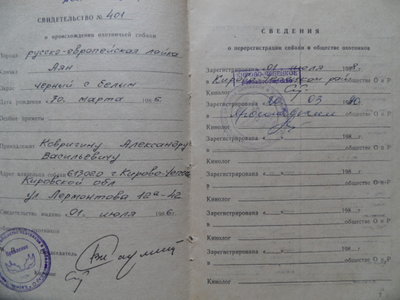 СВИДЕТЕЛЬСТВО № 401
о происхождении охотничьей собаки
Порода русско-европейская лайка
Кличка Аян
Окрас чёрный с белым
Дата рождения 20. марта 1986
Особые приметы
Принадлежит Ковригину Александру
Васильевичу
Адрес владельца собаки 613020 г. Кирово-Чепецк
Кировской обл
ул Лермонтова 10а-42
Свидетельство выдано "01" июля 1986 г.
СВЕДЕНИЯ
о перерегистрации собаки в обществе охотников
Зарегистрирована "01" июля 198
в обществе О и Р
Кинолог
Зарегистрирована 20 03
в обществе О и Р
Кинолог
Зарегистрирована " " 198 г.
в обществе О и Р
Кинолог
Зарегистрирована " " 198 г.
в обществе О и Р
Кинолог
Зарегистрирована " " 198 г.
в обществе О и Р
Кинолог
Зарегистрирована " " 198 г.
в обществе О и Р
Кинолог
Зарегистрирована " " 198 г.
в обществе О и Р
Кинолог